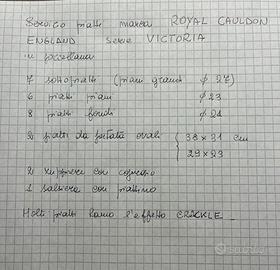 Servizio piatti marca ROYAL CAULDON
ENGLAND serie VICTORIA
in porcellana
7 sottopiatti (piani grandi ø 27)
6 piatti piani ø 23
8 piatti fondi ø 21
2 piatti da portata ovali { 38 x 31 cm
29 x 23
2 zuppiere con coperchio
1 salsiera con piattino
Molti piatti hanno l'effetto CRACKLE
subito